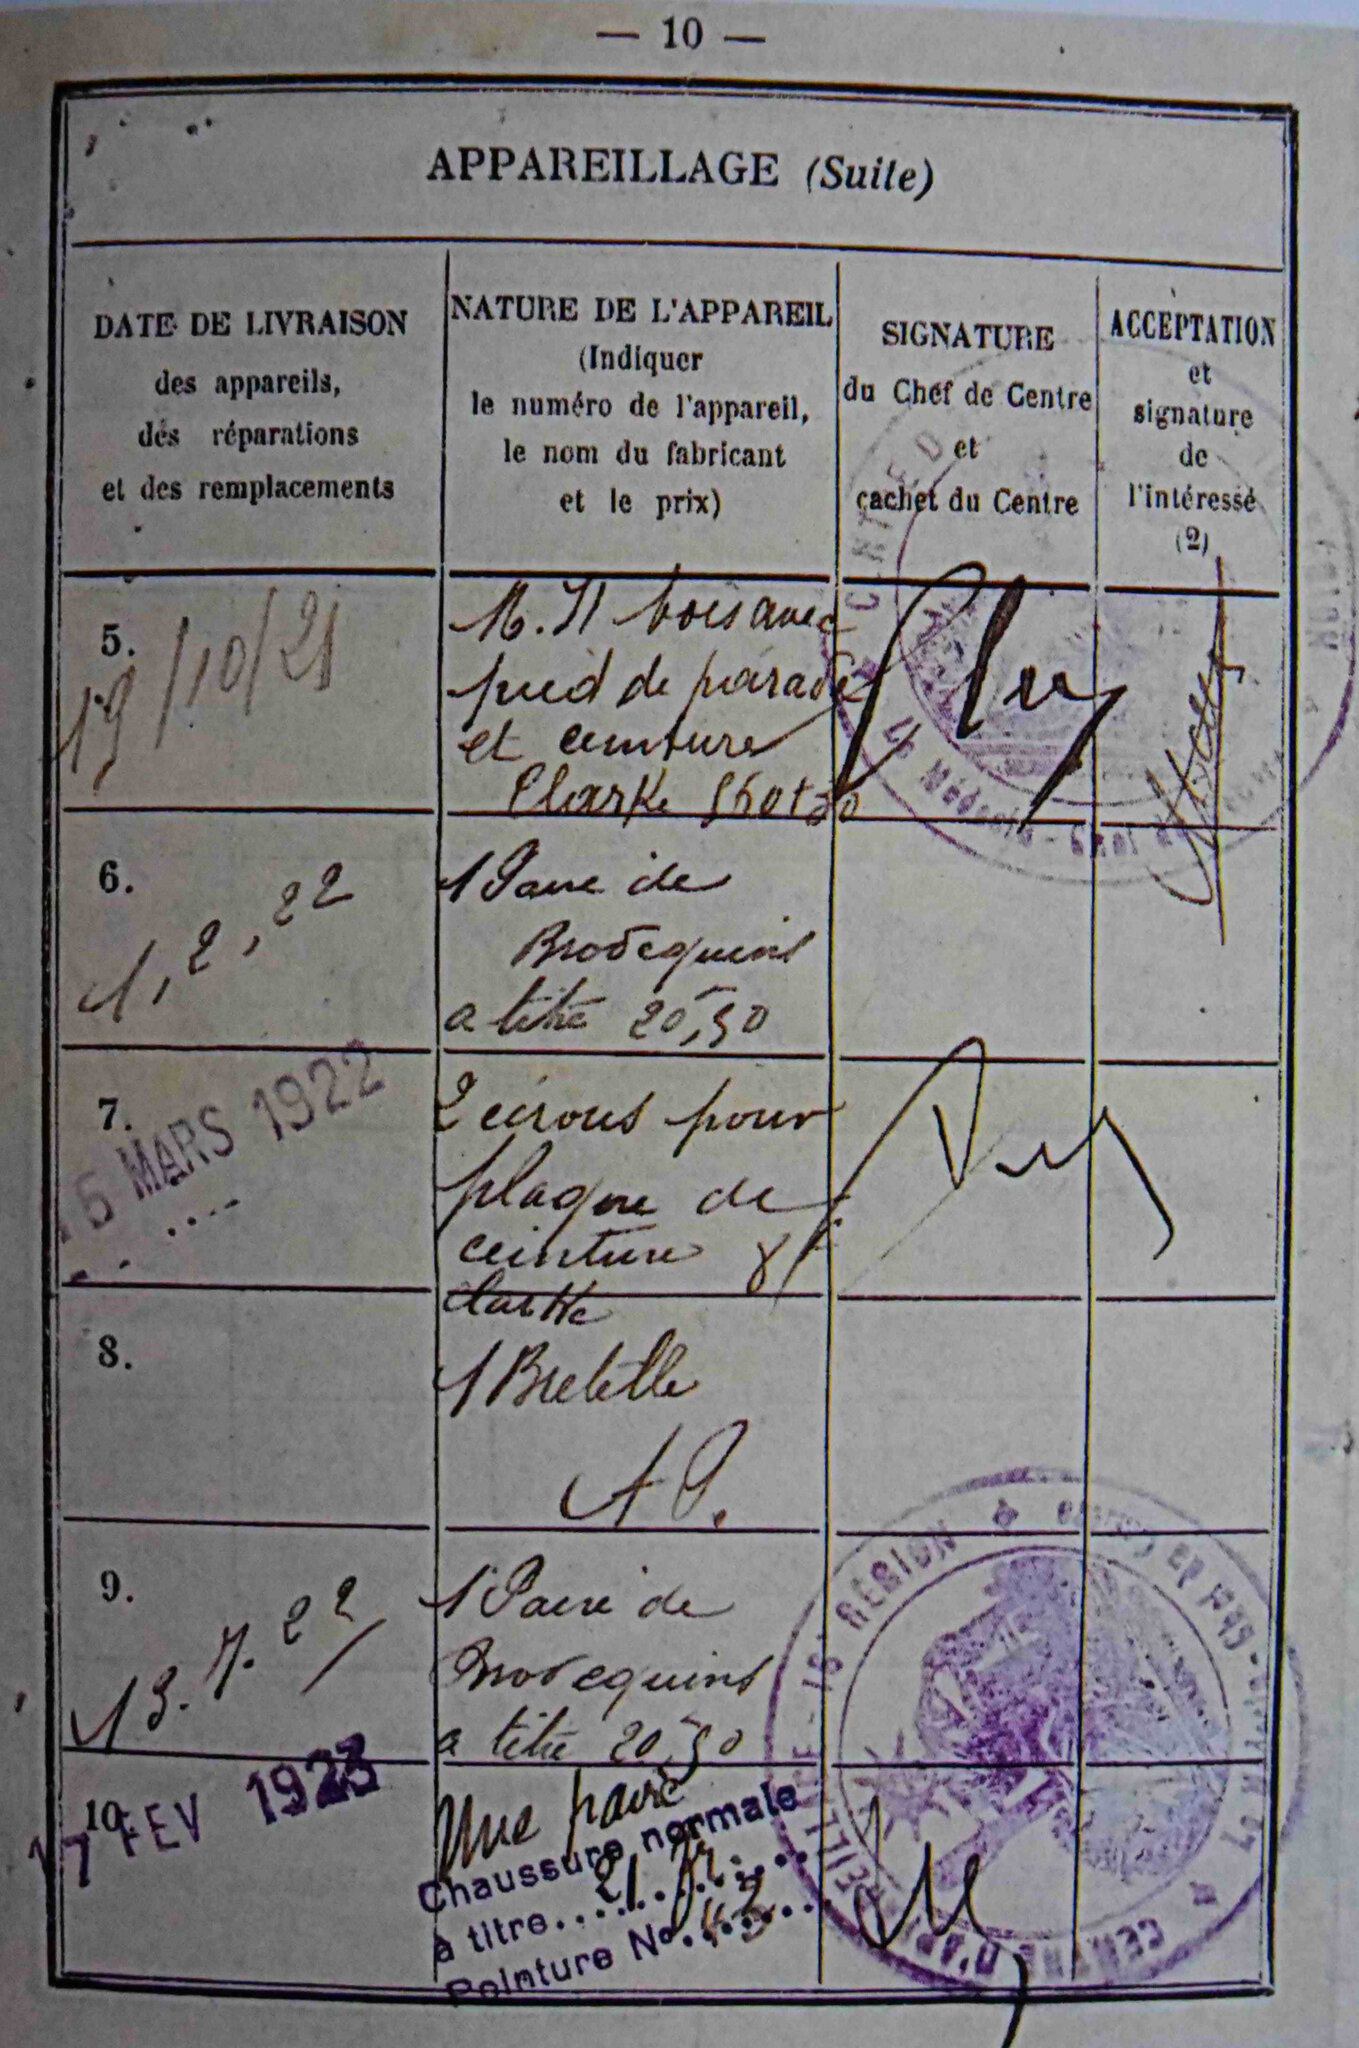 — 10 —
APPAREILLAGE (Suite)
DATE DE LIVRAISON
des appareils,
des réparations
et des remplacements
NATURE DE L'APPAREIL
(Indiquer
le numéro de l'appareil,
le nom du fabricant
et le prix)
SIGNATURE
du Chef de Centre
et
cachet du Centre
ACCEPTATION
et
signature
de
l'intéressé
(2)
5.
19/10/21
bois avec
pied de parade
et ceinture
Clarke
Le Médecin-Chef
6.
1, 2, 22
1 Paire de
Brodequins
a titre 20,50
7.
MARS 1922
2 écrous pour
plaque de
ceinture
Clarke
8.
1 Bretelle
A P.
9.
13.7.22
1 Paire de
Brodequins
a titre 20,50
10.
17 FEV 1923
Une paire
Chaussure normale
à titre
Pointure No 43
CENTRE D'APPAREILLAGE
RÉGION